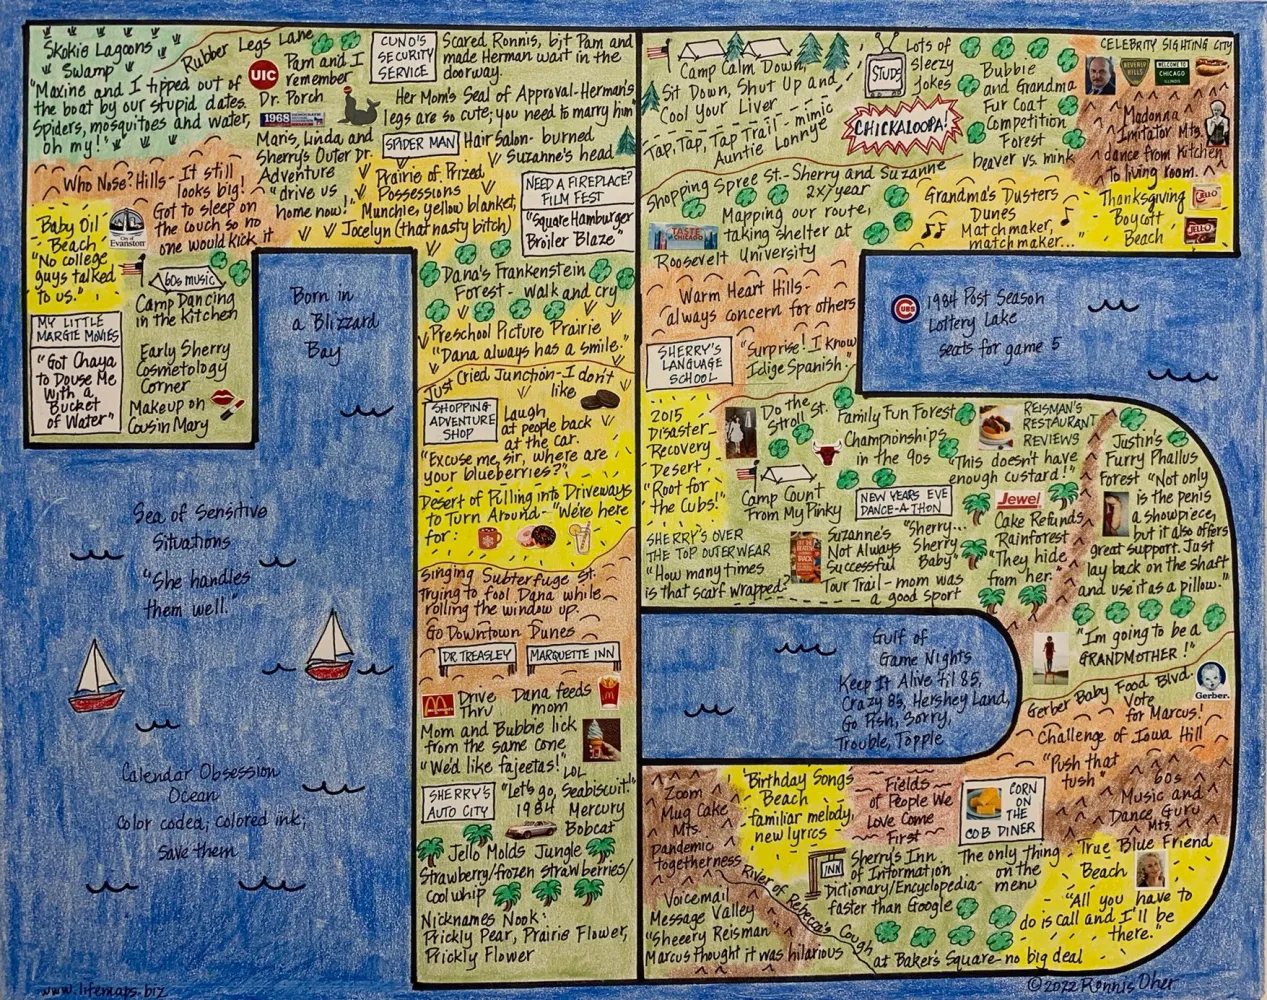 Skokie Lagoons
Swamp
"Maxine and I tipped out of
the boat by our stupid dates.
Spiders, mosquitoes and water,
oh my!"
Rubber Legs Lane
UIC
Pam and I
remember
Dr. Porch
1968
CUNO'S
SECURITY
SERVICE
Scared Ronnis, bjt Pam and
made Herman wait in the
doorway.
Her Mom's Seal of Approval-Herman's
legs are so cute; you need to marry him"
Maris, Linda and
Sherry's Outer Dr.
Adventure
"drive us
home now!"
SPIDER MAN
Hair Salon- burned
Suzanne's head
Prairie of Prized
Possessions
Munchie, yellow blanket,
Jocelyn (that nasty bitch)
NEED A FIREPLACE?
FILM FEST
"Square Hamburger
Broiler Blaze"
Who Nose? Hills-It still
looks big!
Got to sleep on
the couch so no
one would kick it
Baby Oil
Beach
"No college
guys talked
to us."
City of
Evanston
60s MUSIC
Camp Dancing
in the Kitchen
MY LITTLE
MARGIE MOVIES
"Got Chaya
to Douse Me
With a
Bucket
of Water"
Early Sherry
Cosmetology
Corner
Makeup on
Cousin Mary
Born in
a Blizzard
Bay
Dana's Frankenstein
Forest - Walk and cry
Preschool Picture Prairie
"Dana always has a smile."
Just Cried Junction-I don't
like
SHOPPING
ADVENTURE
SHOP
Laugh
at people back
at the car.
"Excuse me, sir, where are
your blueberries?"
Desert of Pulling into Driveways
to Turn Around-"We're here
for:
Singing Subterfuge St.
Trying to fool Dana while
rolling the window up.
Go Downtown Dunes
DR. TREASLEY
MARQUETTE INN
Drive
Thru
Dana feeds
mom
Mom and Bubbie lick
from the same cone
"We'd like fajeetas!" LOL
SHERRY'S
AUTO CITY
"Let's go, Seabiscuit!"
1984 Mercury
Bobcat
Jello Molds Jungle
Strawberry/frozen strawberries/
cool whip
Nicknames Nook:
Prickly Pear, Prairie Flower,
Prickly Flower
Sea of Sensitive
Situations
"She handles
them well."
Calendar Obsession
Ocean
Color coded, colored ink,
save them
www.lifemaps.biz
Camp Calm Down,
Sit Down, Shut Up and
Cool Your Liver
Tap, Tap, Tap Trail - mimic
Auntie Lonnye
STUDS
Lots of
sleezy
jokes
CHICKALOOPA!
Bubbie
and Grandma
Fur Coat
Competition
Forest
beaver vs. mink
CELEBRITY SIGHTING CITY
BEVERLY
HILLS
WELCOME TO
CHICAGO
ILLINOIS
Madonna
Imitator Mts.
dance from kitchen
to living room.
Shopping Spree St.-Sherry and Suzanne
2x/year
TASTE
CHICAGO
Mapping our route,
taking shelter at
Roosevelt University
Grandma's Dusters
Dunes
Matchmaker,
matchmaker..."
Thanksgiving
Boycott
Beach
JELLO
JELLO
Warm Heart Hills-
always concern for others
CUBS
1984 Post Season
Lottery Lake
seats for game 5
SHERRY'S
LANGUAGE
SCHOOL
"Surprise! I know
Idige Spanish."
2015
Disaster
Recovery
Desert
"Root for
the Cubs!"
Do the
Stroll St.
Family Fun Forest
Championships
in the 90s
REISMAN'S
RESTAURANT
REVIEWS
"This doesn't have
enough custard!"
Camp Count
From My Pinky
NEW YEARS EVE
DANCE-A-THON
Jewel
Cake Refunds
Rainforest
"They hide
from her."
Justin's
Furry Phallus
Forest "Not only
is the penis
a showpiece,
but it also offers
great support. Just
lay back on the shaft
and use it as a pillow."
SHERRY'S OVER
THE TOP OUTERWEAR
"How many times
is that scarf wrapped?"
Suzanne's
Not Always
Successful
Tour Trail-mom was
a good sport
"Sherry...
Sherry
Baby"
Gulf of
Game Nights
Keep It Alive til 85,
Crazy 8s, Hershey Land,
Go Fish, Sorry,
Trouble, Topple
"I'm going to be a
GRANDMOTHER!"
Gerber Baby Food Blvd.
Vote
for Marcus!
Gerber.
Challenge of Iowa Hill
"Push that
tush"
Zoom
Mug Cake
Mts.
Pandemic
togetherness
Birthday Songs
Beach
familiar melody,
new lyrics
Fields
of People We
Love Come
First
CORN
ON
THE
COB DINER
The only thing
on the
menu
60s
Music and
Dance Guru
Mts.
INN
Sherry's Inn
of Information
Dictionary/Encyclopedia-
faster than Google
True Blue Friend
Beach
"All you have to
do is call and I'll be
there."
Voicemail
Message Valley
"Sheeery Reisman"
Marcus thought it was hilarious
River of Rebecca's Cough
at Baker's Square-no big deal
©2022 Ronnis Oher